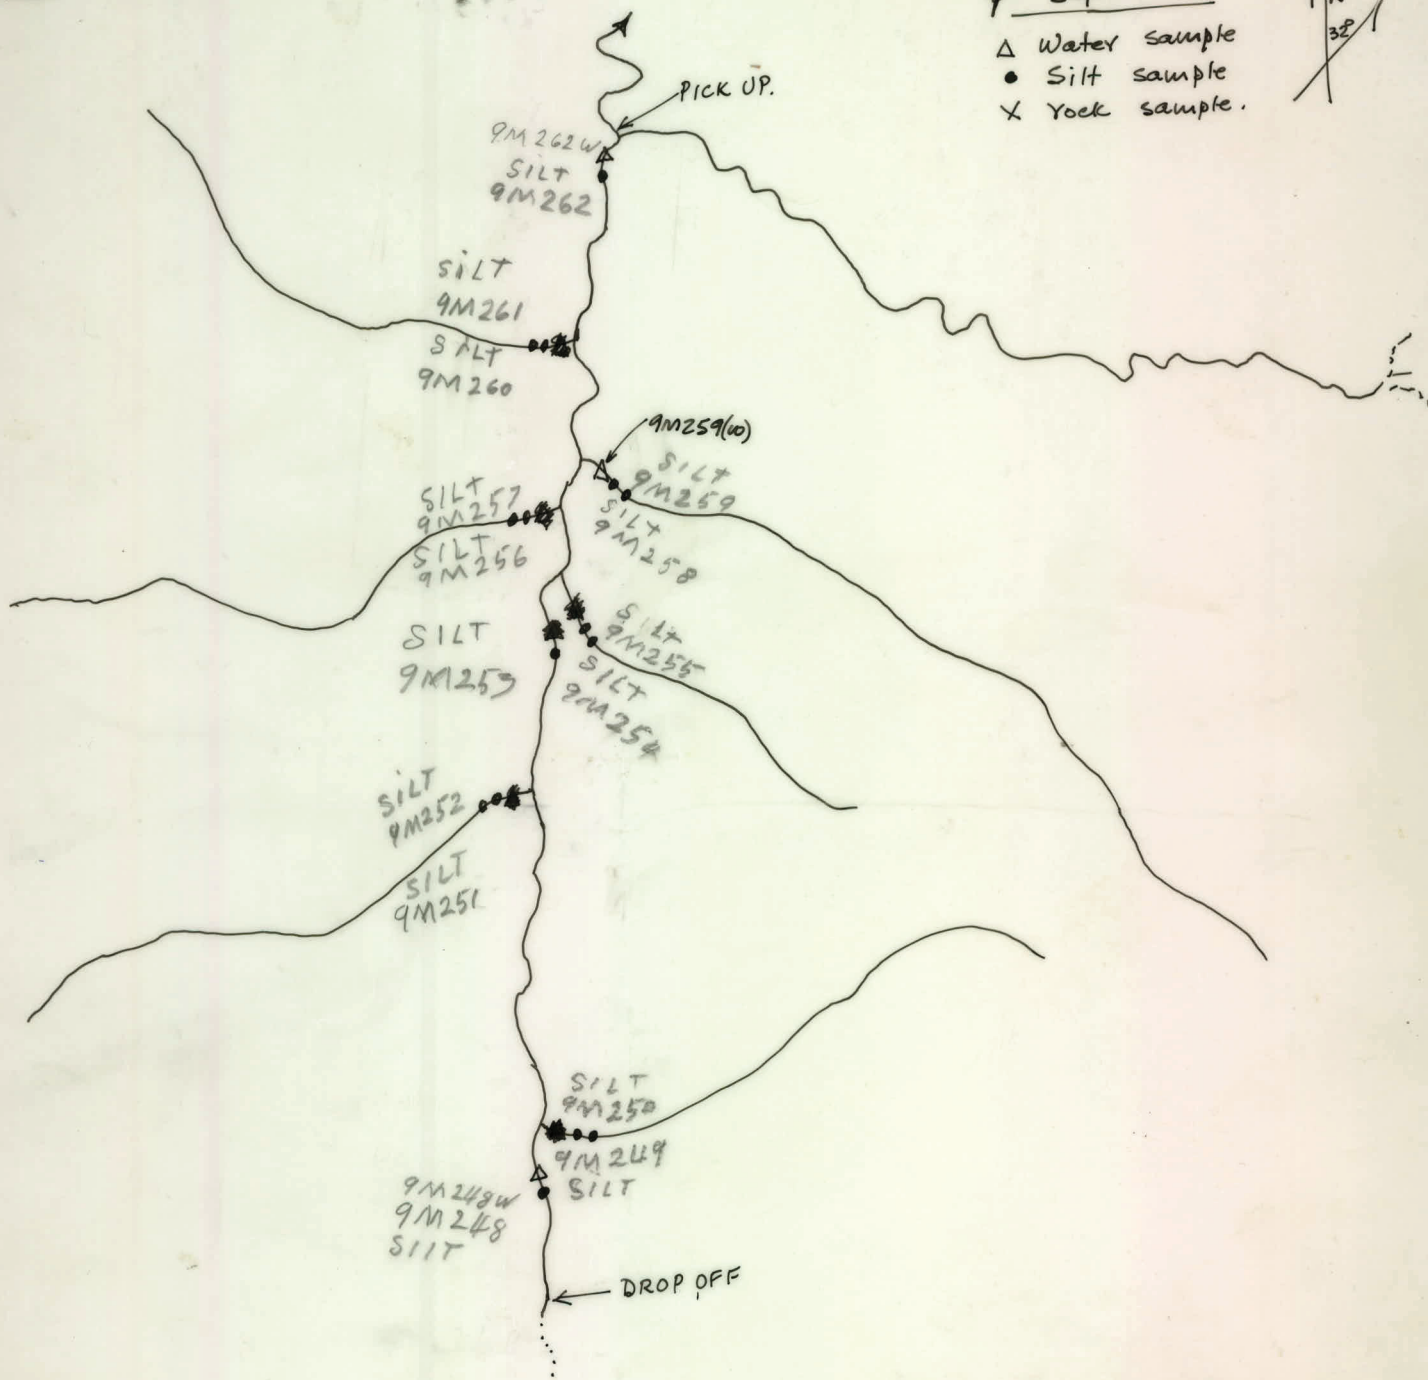 △ Water sample
● Silt sample
X rock sample.
N
32°
PICK UP.
9M262W
SILT
9M262
SILT
9M261
SILT
9M260
9M259(W)
SILT
9M259
SILT
9M258
SILT
9M257
SILT
9M256
SILT
9M255
SILT
9M254
SILT
9M253
SILT
9M252
SILT
9M251
SILT
9M250
9M249
SILT
9M248W
9M248
SILT
DROP OFF